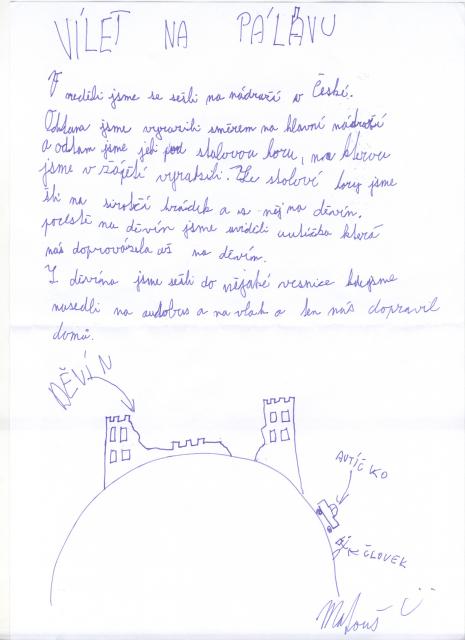 VÍLET NA PÁLAVU
V neděli jsme se sešli na nádraží v České.
Odtama jsme vyrazili směrem na hlavní nádraží
a odtam jsme jeli pod stolovou horu, na kterou
jsme v zájětí vyrazili. Ze stolové hory jsme
šli na sirotčí hrádek a s něj na děvín.
po cestě na děvín jsme uviděli autíčko která
nás doprovázela až na děvín.
Z děvína jsme sešli do nějaké vesnice kde jsme
nasedli na audobus a na vlak a ten nás dopravil
domů.
DĚVÍN
AUTÍČKO
ČLOVEK
Matouš